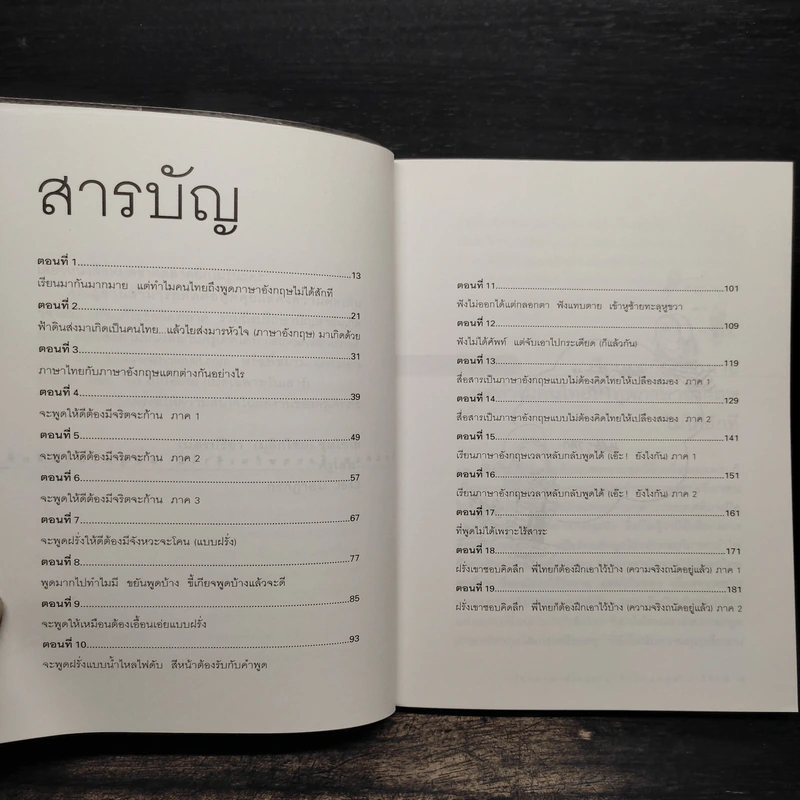 สารบัญ
ตอนที่ 1...........................................................................13
เรียนมากันมากมาย แต่ทำไมคนไทยถึงพูดภาษาอังกฤษไม่ได้สักที
ตอนที่ 2...........................................................................21
ฟ้าดินส่งมาเกิดเป็นคนไทย...แล้วไยส่งมารหัวใจ (ภาษาอังกฤษ) มาเกิดด้วย
ตอนที่ 3...........................................................................31
ภาษาไทยกับภาษาอังกฤษแตกต่างกันอย่างไร
ตอนที่ 4...........................................................................39
จะพูดให้ดีต้องมีจริตจะก้าน ภาค 1
ตอนที่ 5...........................................................................49
จะพูดให้ดีต้องมีจริตจะก้าน ภาค 2
ตอนที่ 6...........................................................................57
จะพูดให้ดีต้องมีจริตจะก้าน ภาค 3
ตอนที่ 7...........................................................................67
จะพูดฝรั่งให้ดีต้องมีจังหวะจะโคน (แบบฝรั่ง)
ตอนที่ 8...........................................................................77
พูดมากไปทำไมมี ขยันพูดบ้าง ขี้เกียจพูดบ้างแล้วจะดี
ตอนที่ 9...........................................................................85
จะพูดให้เหมือนต้องเอื้อนเอ่ยแบบฝรั่ง
ตอนที่ 10.........................................................................93
จะพูดฝรั่งแบบน้ำไหลไฟดับ สีหน้าต้องรับกับคำพูด
ตอนที่ 11.........................................................................101
ฟังไม่ออกได้แต่กลอกตา ฟังแทบตาย เข้าหูซ้ายทะลุหูขวา
ตอนที่ 12.........................................................................109
ฟังไม่ได้ศัพท์ แต่จับเอาไปกระเดียด (ก็แล้วกัน)
ตอนที่ 13.........................................................................119
สื่อสารเป็นภาษาอังกฤษแบบไม่ต้องคิดไทยให้เปลืองสมอง ภาค 1
ตอนที่ 14.........................................................................129
สื่อสารเป็นภาษาอังกฤษแบบไม่ต้องคิดไทยให้เปลืองสมอง ภาค 2
ตอนที่ 15.........................................................................141
เรียนภาษาอังกฤษเวลาหลับกลับพูดได้ (เอ๊ะ! ยังไงกัน) ภาค 1
ตอนที่ 16.........................................................................151
เรียนภาษาอังกฤษเวลาหลับกลับพูดได้ (เอ๊ะ! ยังไงกัน) ภาค 2
ตอนที่ 17.........................................................................161
ที่พูดไม่ได้เพราะไร้สาระ
ตอนที่ 18.........................................................................171
ฝรั่งเขาชอบคิดลึก พี่ไทยก็ต้องฝึกเอาไว้บ้าง (ความจริงถนัดอยู่แล้ว) ภาค 1
ตอนที่ 19.........................................................................181
ฝรั่งเขาชอบคิดลึก พี่ไทยก็ต้องฝึกเอาไว้บ้าง (ความจริงถนัดอยู่แล้ว) ภาค 2